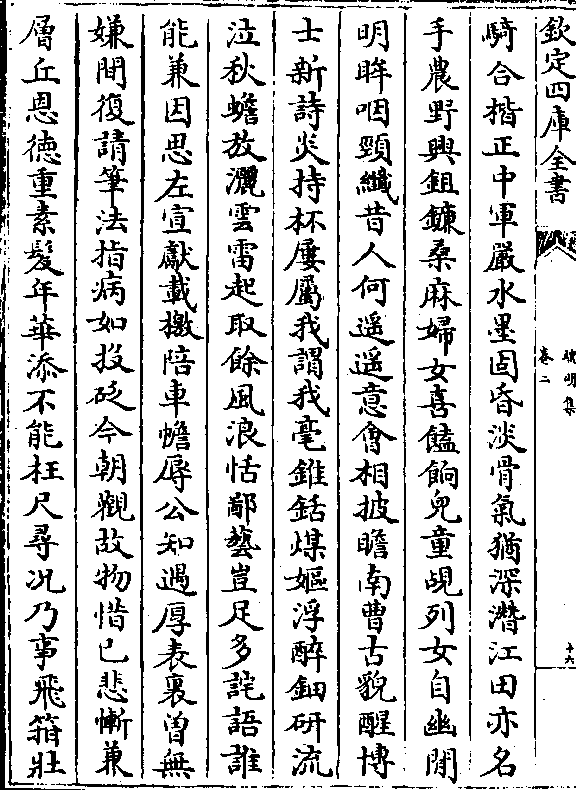 欽定四庫全書
騎合楷正中軍嚴水墨固昏淡骨氣猶深濳江田亦名
手農野興鉏鐮桑麻婦女喜饁餉兒童覘列女自幽閒
明眸咽頸纎昔人何遥遥意會相披瞻南曹古貌醒博
士新詩炎持杯屢屬我謂我毫錐銛煤嫗浮醉鈿研流
泣秋蟾放灑雲雷起取餘風浪恬鄙藝豈足多詫語誰
能兼因思左宣獻載橄陪車幨辱公知遇厚表裏曾無
嫌間復請筆法指病如投砭今朝觀故物惜已悲慚兼
層丘恩徳重素髪年華添不能枉尺尋况乃事飛箝壯
明集
卷二
十六